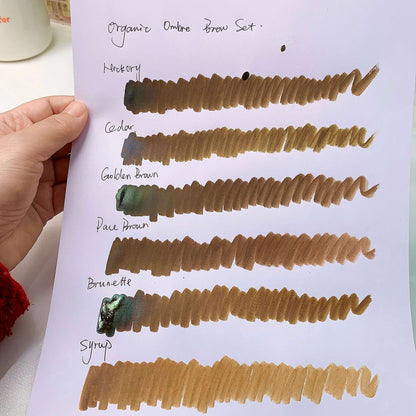 Organic Ombre Brow Set.
Hickory
Cedar
Golden Brown
Pace Broun
Brunette
Syrup